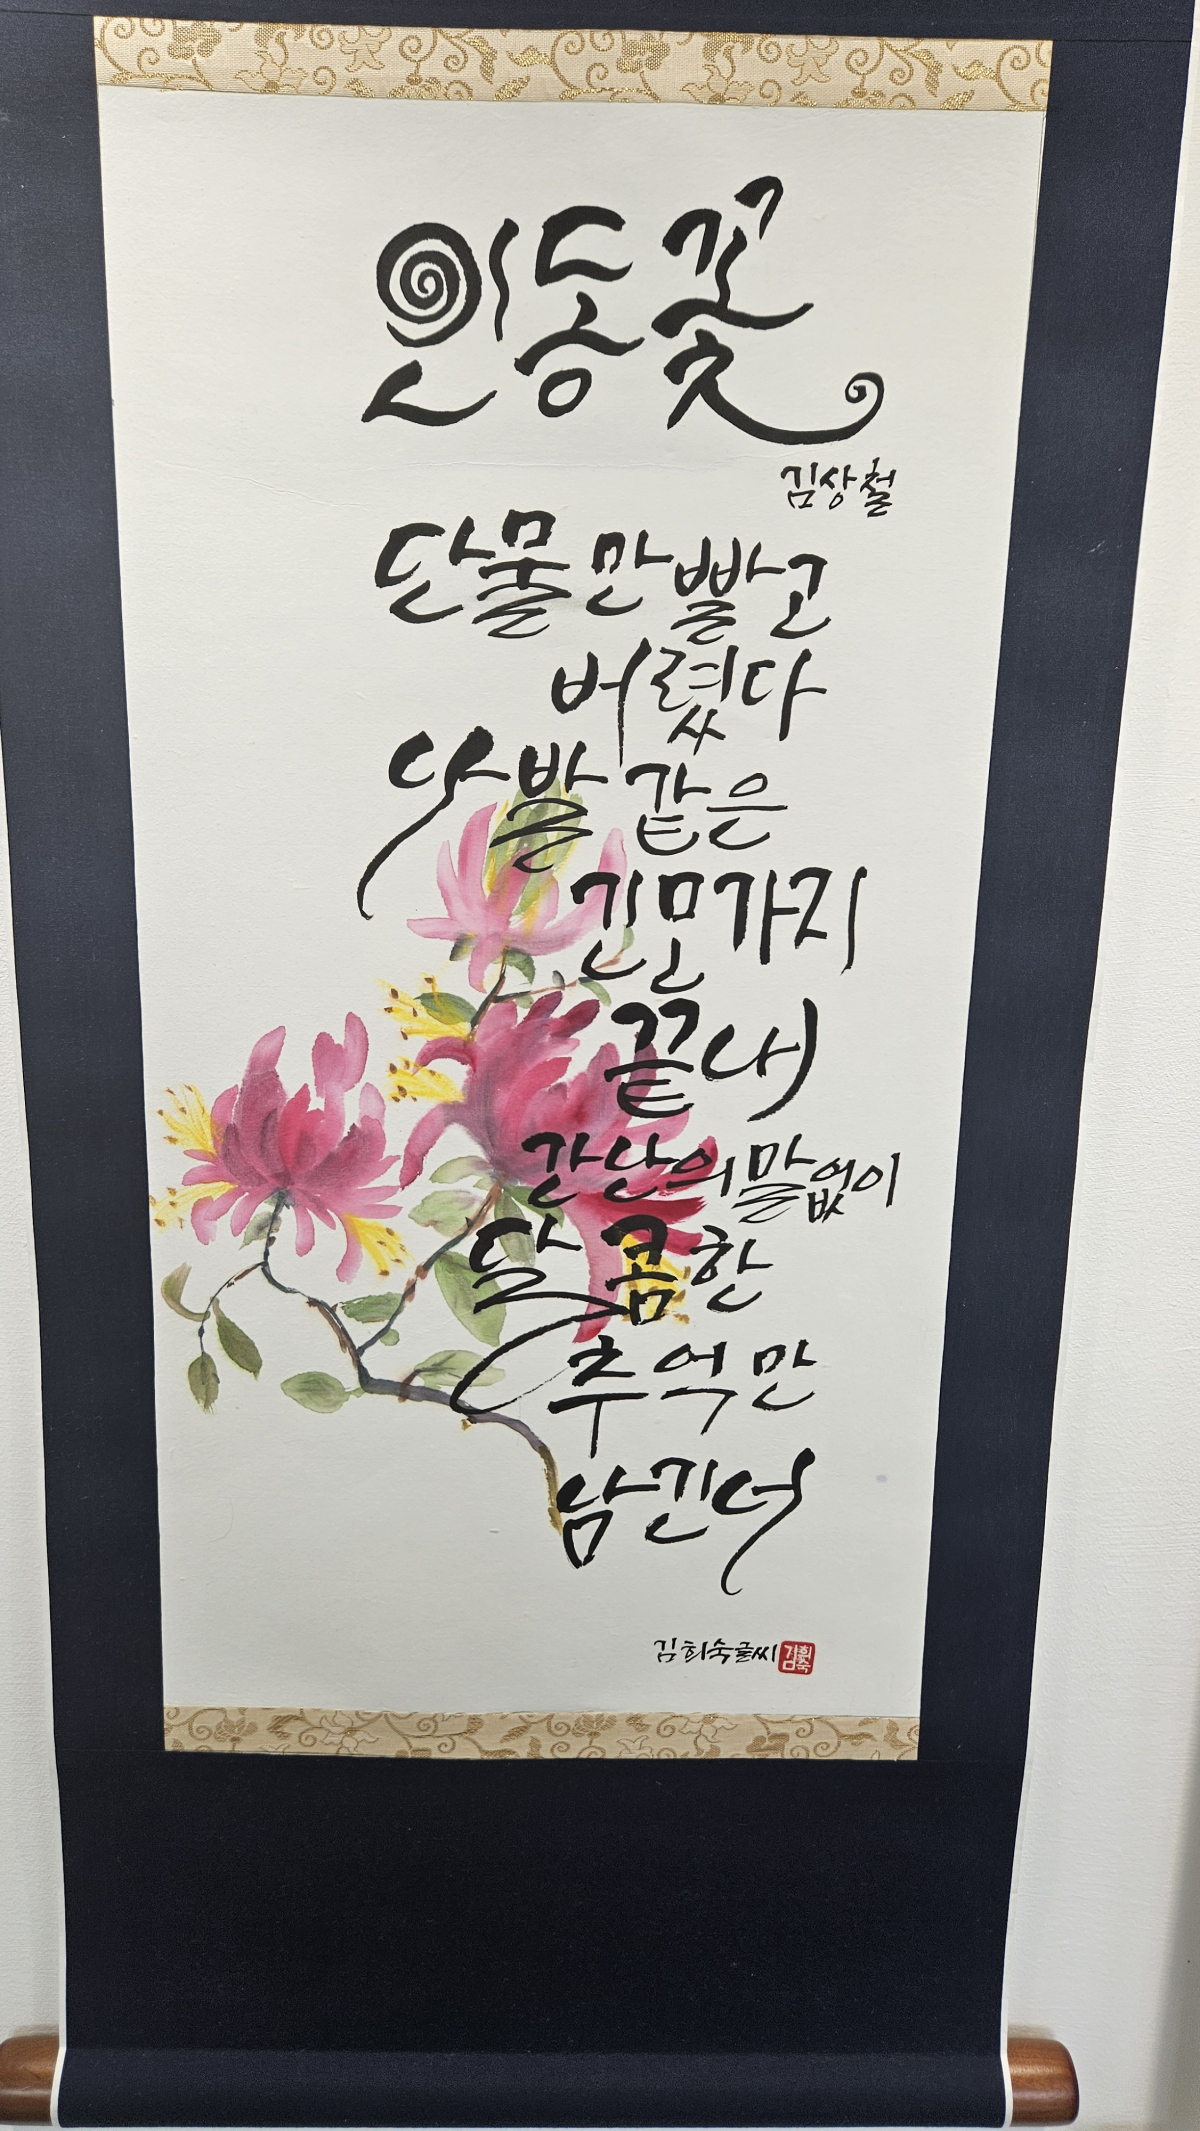 인동꽃
김상철
단물만 빨고
버렸다
나발 같은
긴 모가지
끝내
간단의 말 없이
달콤한
추억만
남긴 너
김희숙 글씨
김희숙